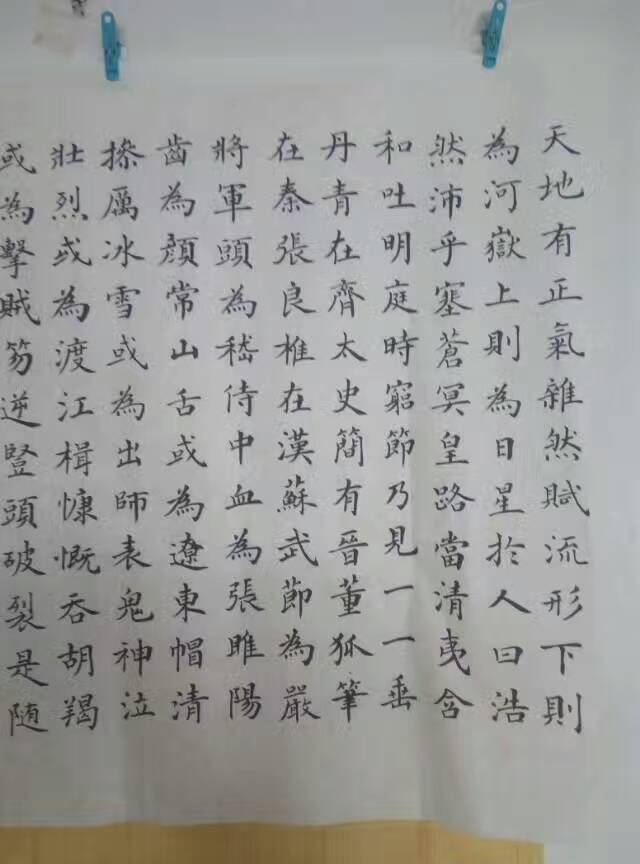 天地有正氣雜然賦流形下則
為河嶽上則為日星於人曰浩
然沛乎塞蒼冥皇路當清夷含
和吐明庭時窮節乃見一一垂
丹青在齊太史簡有晉董狐筆
在秦張良椎在漢蘇武節為嚴
將軍頭為嵇侍中血為張睢陽
齒為顏常山舌或為遼東帽清
操厲冰雪或為出師表鬼神泣
壯烈或為渡江楫慷慨吞胡羯
或為擊賊笏逆豎頭破裂是隨